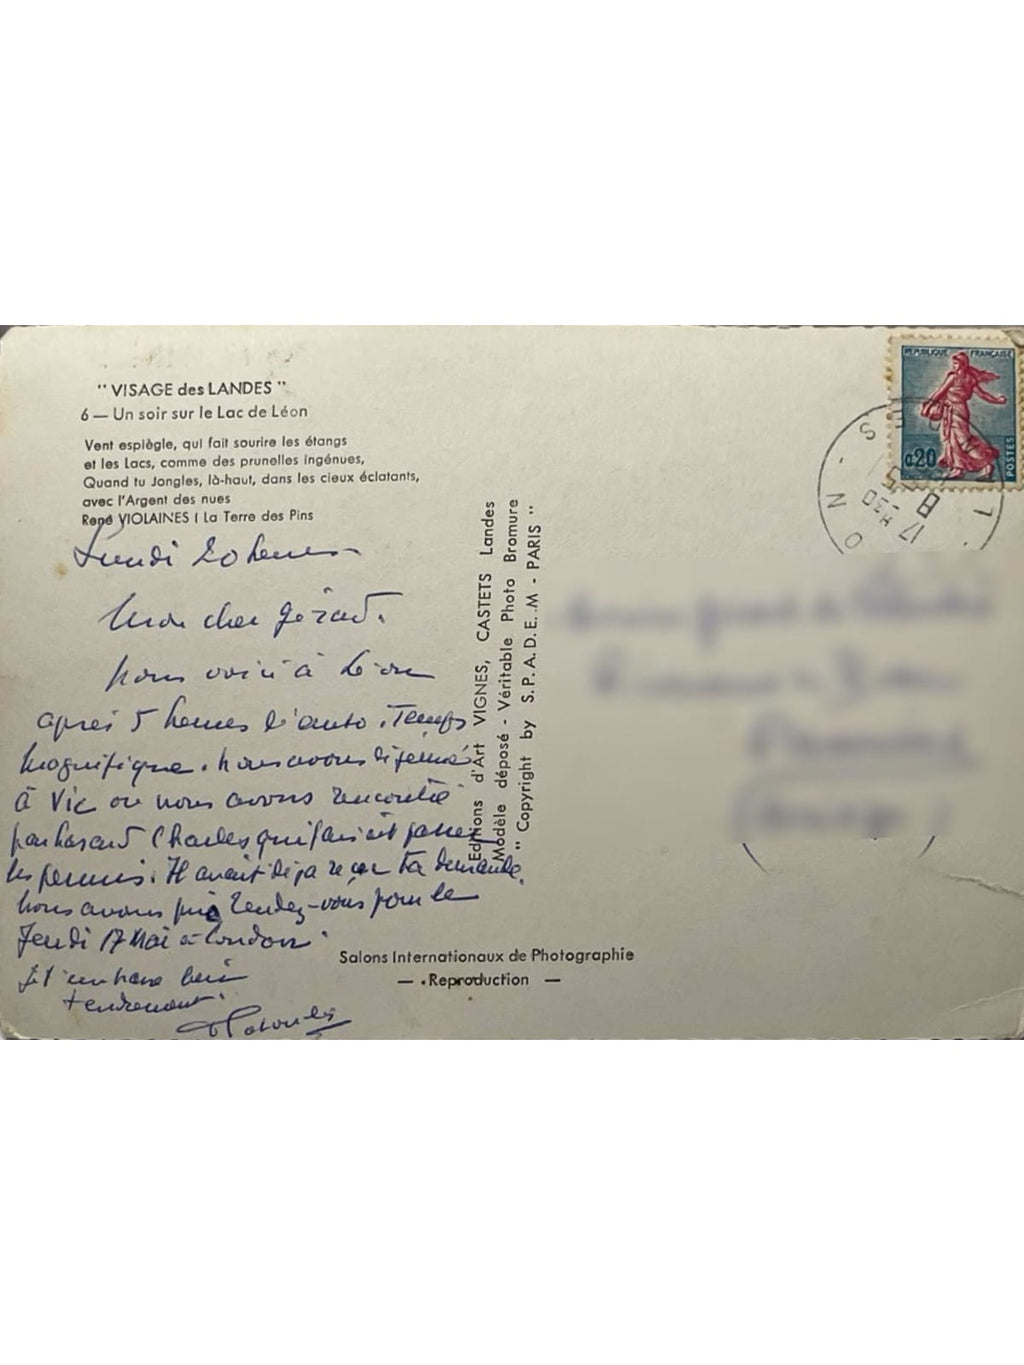 " VISAGE des LANDES "
6 — Un soir sur le Lac de Léon
Vent espiègle, qui fait sourire les étangs
et les Lacs, comme des prunelles ingénues,
Quand tu Jongles, là-haut, dans les cieux éclatants,
avec l'Argent des nues
René VIOLAINES | La Terre des Pins
Lundi 20 heures
Mon cher Gérard.
nous voici à Léon
après 5 heures d'auto. Temps
magnifique. nous avons déjeuné
à Vic ou nous avons rencontré
par hasard Charles qui faisait passer
les permis. Il avait déjà reçu ta demande.
nous avons pris rendez-vous pour le
Jeudi 17 Mai à
bien
tendrement.
Editions d'Art VIGNES, CASTETS Landes
Modèle déposé - Véritable Photo Bromure
" Copyright by S.P.A.D.E.M - PARIS "
Salons Internationaux de Photographie
— . Reproduction —
REPUBLIQUE FRANÇAISE
0,20
POSTES
L ON - S
17 H30
15
8